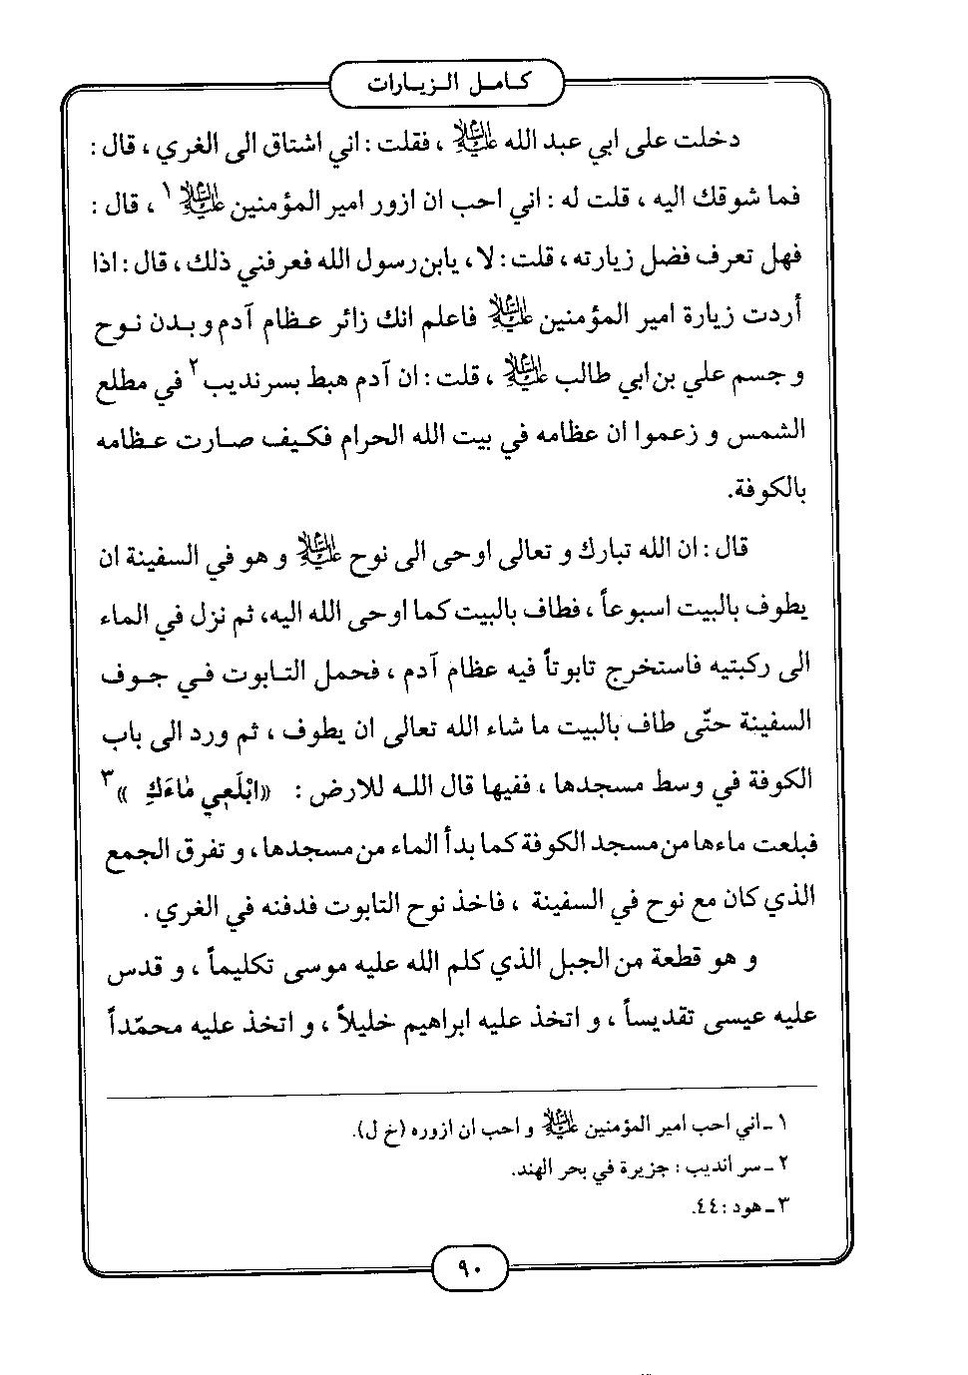 كامل الزيارات
دخلت على ابي عبد الله عليه السلام ، فقلت : اني اشتاق الى الغري ، قال :
فما شوقك اليه ، قلت له : اني احب ان ازور امير المؤمنين عليه السلام ١ ، قال :
فهل تعرف فضل زيارته ، قلت : لا ، يابن رسول الله فعرفني ذلك ، قال : اذا
أردت زيارة امير المؤمنين عليه السلام فاعلم انك زائر عظام آدم و بدن نوح
و جسم علي بن ابي طالب عليه السلام ، قلت : ان آدم هبط بسرنديب ٢ في مطلع
الشمس و زعموا ان عظامه في بيت الله الحرام فكيف صارت عظامه
بالكوفة.
قال : ان الله تبارك و تعالى اوحى الى نوح عليه السلام و هو في السفينة ان
يطوف بالبيت اسبوعاً ، فطاف بالبيت كما اوحى الله اليه، ثم نزل في الماء
الى ركبتيه فاستخرج تابوتاً فيه عظام آدم ، فحمل التابوت في جوف
السفينة حتّى طاف بالبيت ما شاء الله تعالى ان يطوف ، ثم ورد الى باب
الكوفة في وسط مسجدها ، ففيها قال الله للارض : «ابْلَعِي مٰاءَكِ » ٣
فبلعت ماءها من مسجد الكوفة كما بدأ الماء من مسجدها ، و تفرق الجمع
الذي كان مع نوح في السفينة ، فاخذ نوح التابوت فدفنه في الغري .
و هو قطعة من الجبل الذي كلم الله عليه موسى تكليماً ، و قدس
عليه عيسى تقديساً ، و اتخذ عليه ابراهيم خليلاً ، و اتخذ عليه محمّداً
١ ـ اني احب امير المؤمنين عليه السلام و احب ان ازوره (خ ل).
٢ ـ سر انديب : جزيرة في بحر الهند.
٣ ـ هود : ٤٤.
٩٠